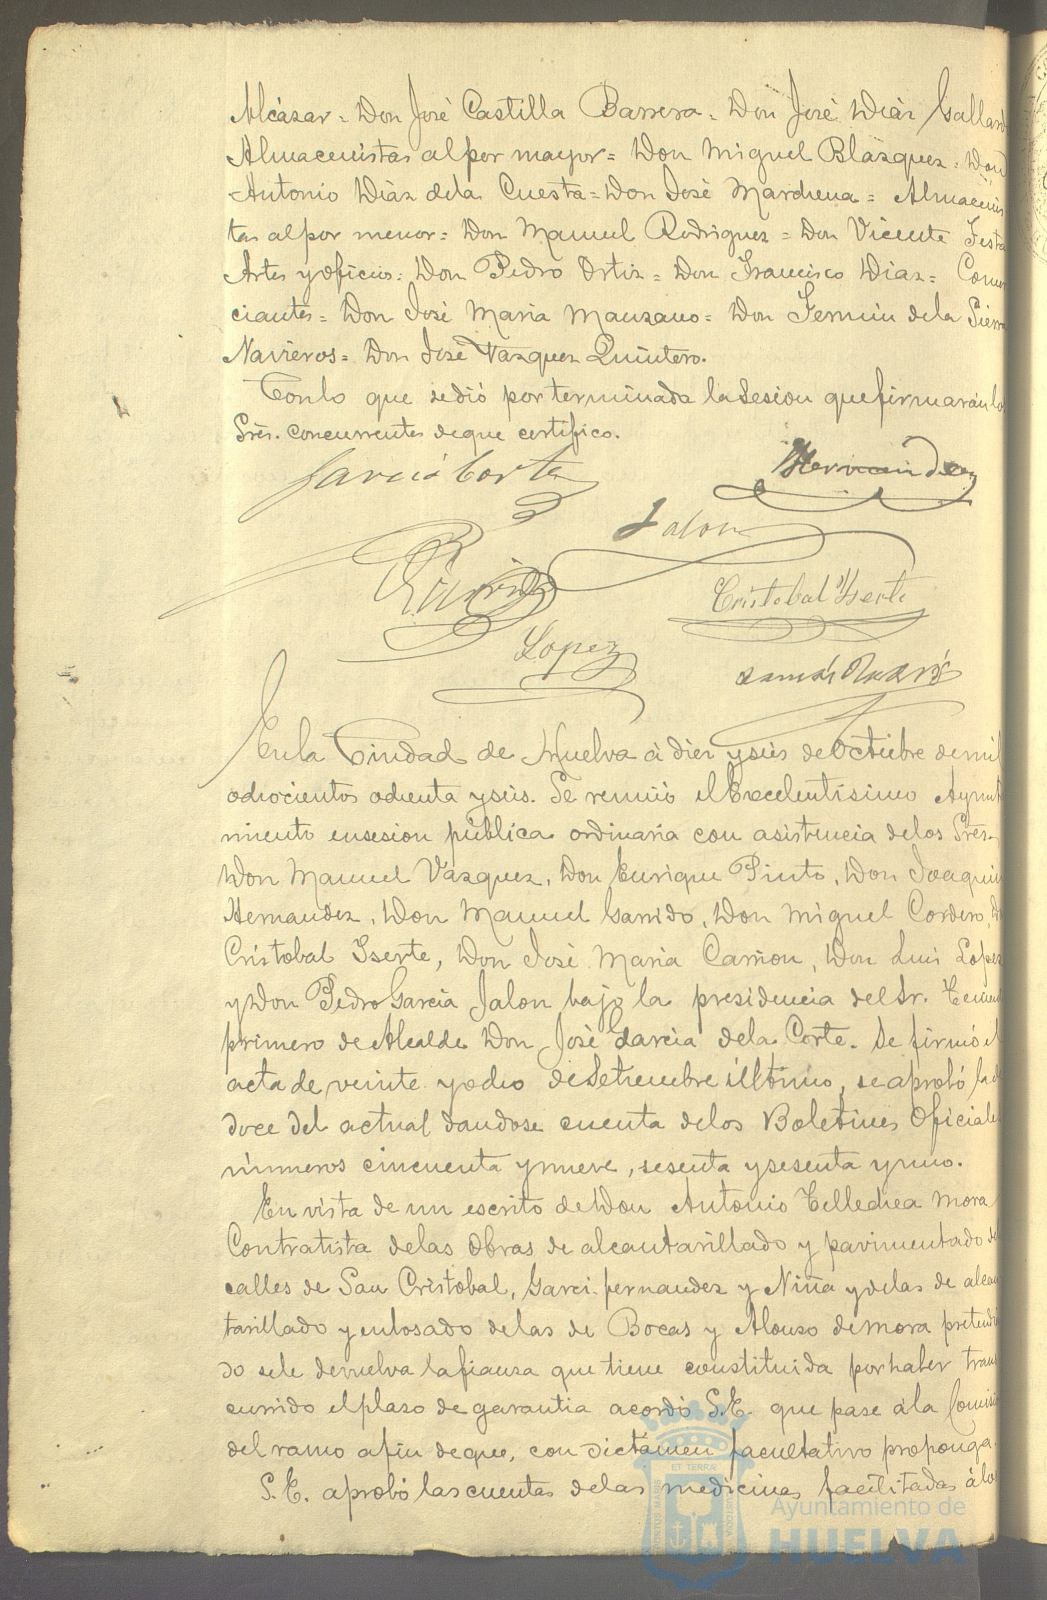 Alcázar = Don José Castilla Barrera = Don José Diáz Gallard
Almacenistas al por mayor = Don Miguel Blázquez = Don
Antonio Diáz dela Cuesta = Don José Marchena = Almacenis
tas al por menor = Don Manuel Rodriguez = Don Vicente
Artes y oficios = Don Pedro Ortiz = Don Francisco Diaz = Comer
ciantes = Don José Maria Manzano = Don Fermin dela Sierra
Navieros = Don José Vázquez Quintero.
Con lo que se dió por terminada la Sesion que firmarán lo
Sres. concurrentes de que certifico.
Garcia Corte
Hernandez
Jalon
Garrido
Cristobal Yserte
Lopez
En la Ciudad de Huelva á diez y seis de Octubre de mil
ochocientos ochenta y seis. Se reunió el Excelentísimo Ayunta
miento en sesion pública ordinaria con asistencia de los Sres.
Don Manuel Vázquez, Don Enrique Pinto, Don Joaquin
Hernandez, Don Manuel Garrido, Don Miguel Cordero, D
Cristobal Yserte, Don José Maria Carrion, Don Luis Lopez
y Don Pedro Garcia Jalon bajo la presidencia del Sr. Tenien
primero de Alcalde Don José Garcia dela Corte. Se firmó el
acta de veinte y ocho de Setiembre último, se aprobó la d
doce del actual dandose cuenta delos Boletines Oficiale
números cincuenta y nueve, sesenta y sesenta y uno.
En vista de un escrito de Don Antonio Tellechea Mora
Contratista delas obras de alcantarillado y pavimentado de
calles de San Cristobal, Garci-fernandez y Niña y delas de alcan
tarillado y enlosado delas de Bocas y Alonso de mora pretendi
do se le devuelva la fianza que tiene constituida por haber trans
currido el plazo de garantia acordó S.E. que pase á la Comisio
del ramo a fin de que, con dictámen facultativo proponga.
S.E. aprobó las cuentas delas medicinas facilitadas á los
Ayuntamiento de
HUELVA